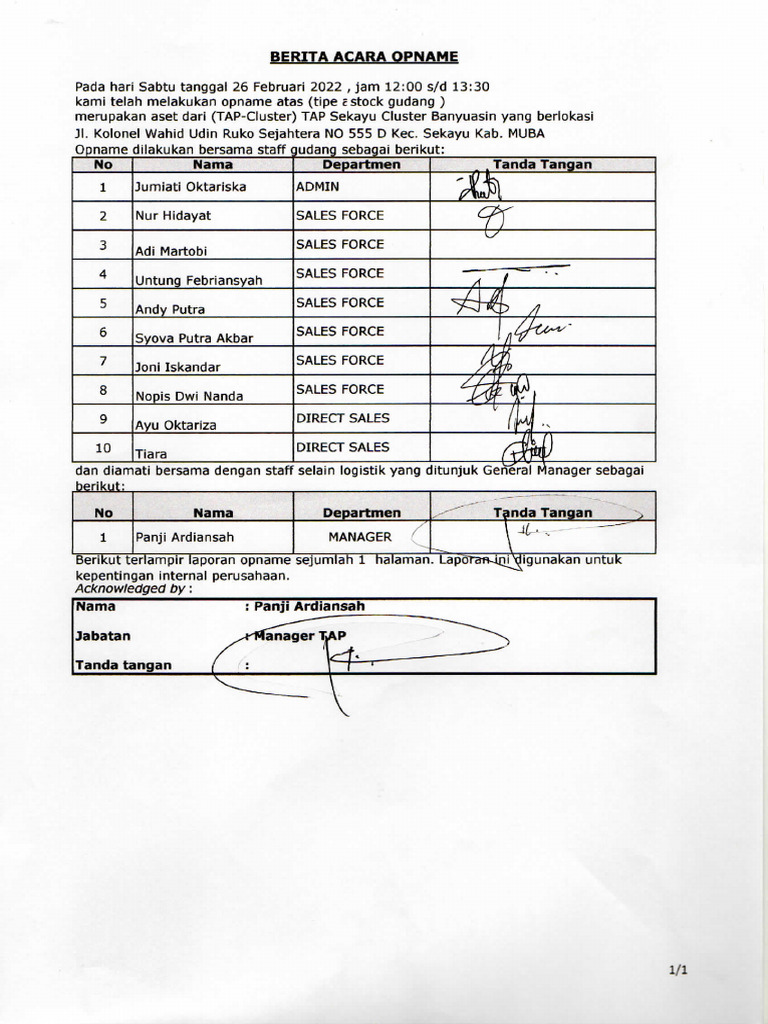 BERITA ACARA OPNAME
Pada hari Sabtu tanggal 26 Februari 2022 , jam 12:00 s/d 13:30
kami telah melakukan opname atas (tipe stock gudang )
merupakan aset dari (TAP-Cluster) TAP Sekayu Cluster Banyuasin yang berlokasi
Jl. Kolonel Wahid Udin Ruko Sejahtera NO 555 D Kec. Sekayu Kab. MUBA
Opname dilakukan bersama staff gudang sebagai berikut:
No Nama Departmen Tanda Tangan
1 Jumiati Oktariska ADMIN
2 Nur Hidayat SALES FORCE
3 Adi Martobi SALES FORCE
4 Untung Febriansyah SALES FORCE
5 Andy Putra SALES FORCE
6 Syova Putra Akbar SALES FORCE
7 Joni Iskandar SALES FORCE
8 Nopis Dwi Nanda SALES FORCE
9 Ayu Oktariza DIRECT SALES
10 Tiara DIRECT SALES
dan diamati bersama dengan staff selain logistik yang ditunjuk General Manager sebagai
berikut:
No Nama Departmen Tanda Tangan
1 Panji Ardiansah MANAGER
Berikut terlampir laporan opname sejumlah 1 halaman. Laporan ini digunakan untuk
kepentingan internal perusahaan.
Acknowledged by :
Nama : Panji Ardiansah
Jabatan : Manager TAP
Tanda tangan :
1/1